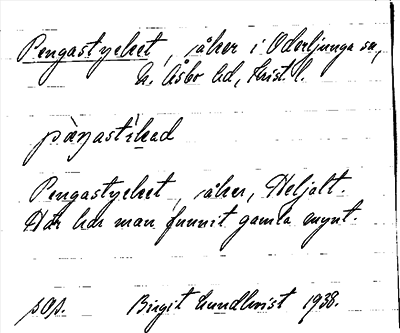 Pengastycket, åker i Oderljunga sn,
N. Åsbo hd, Krist. l.
pàŋastìkad
Pengastycket, åker, Heljalt.
Här har man funnit gamla mynt.
sap. Birgit Lundkvist 1938.